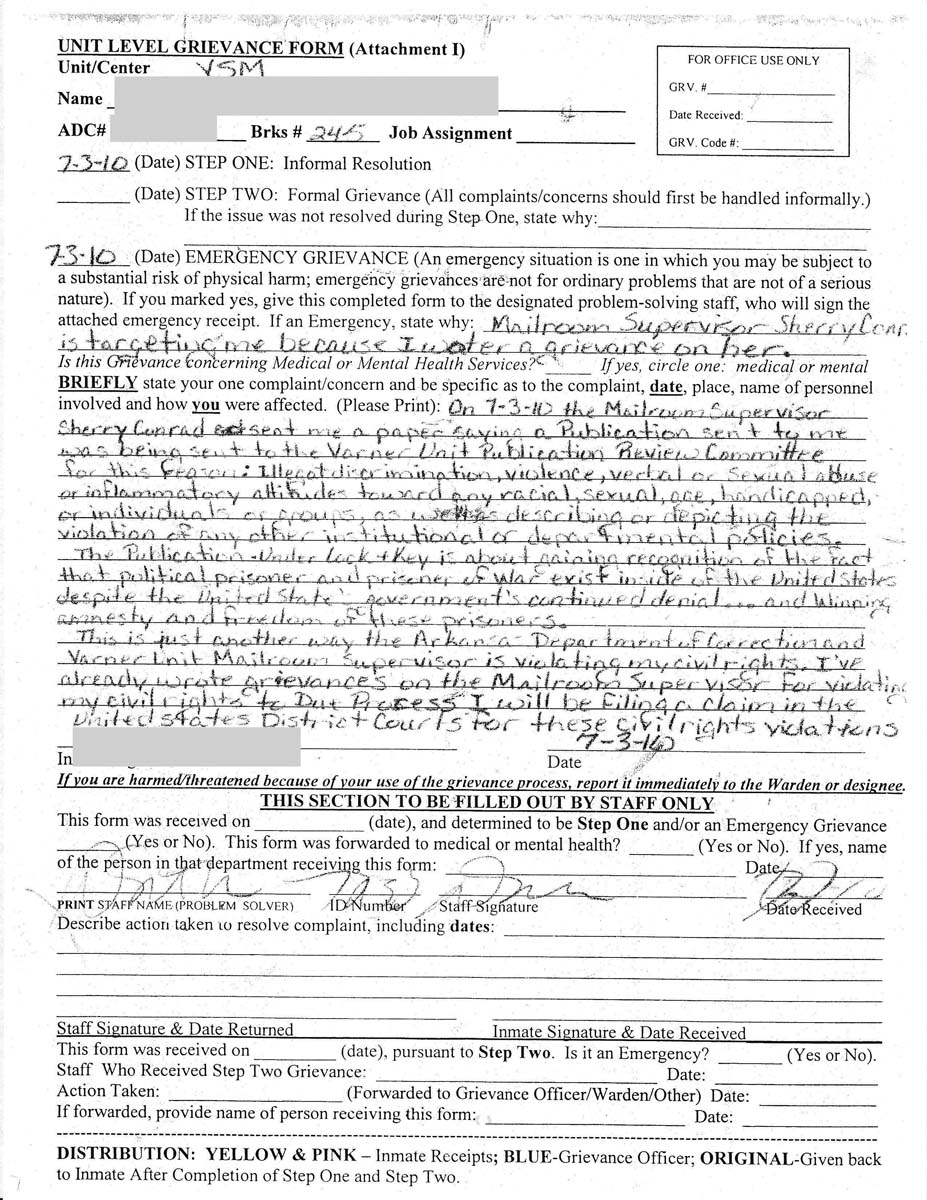 UNIT LEVEL GRIEVANCE FORM (Attachment I)
Unit/Center VSM
Name
ADC# Brks # 245 Job Assignment
FOR OFFICE USE ONLY
GRV. #
Date Received:
GRV. Code #:
7-3-10 (Date) STEP ONE: Informal Resolution
(Date) STEP TWO: Formal Grievance (All complaints/concerns should first be handled informally.)
If the issue was not resolved during Step One, state why:
7-3-10 (Date) EMERGENCY GRIEVANCE (An emergency situation is one in which you may be subject to
a substantial risk of physical harm; emergency grievances are not for ordinary problems that are not of a serious
nature). If you marked yes, give this completed form to the designated problem-solving staff, who will sign the
attached emergency receipt. If an Emergency, state why: Mailroom Supervisor Sherry Conr
is targeting me because I woter a grievance on her.
Is this Grievance concerning Medical or Mental Health Services? If yes, circle one: medical or mental
BRIEFLY state your one complaint/concern and be specific as to the complaint, date, place, name of personnel
involved and how you were affected. (Please Print): On 7-3-10 the Mailroom Supervisor
Sherry Conrad sent me a paper saying a Publication sent to me
was being sent to the Varner Unit Publication Review Committee
for this reason: Illegal discrimination, violence, verbal or Sexual abuse
or inflammatory attitudes toward any racial, sexual, age, handicapped,
or individuals or groups, as well as describing or depicting the
violation of any other institutional or departmental policies.
The Publication Under lock + Key is about gaining recognition of the fact
that political prisoner and prisoner of war exist inside of the United States
despite the United State's government's continued denial... and Winning
amnesty and freedom of these prisoners.
This is just another way the Arkansa Department of Correction and
Varner Unit Mailroom Supervisor is violating my civil rights. I've
already wrote grievances on the Mailroom Supervisor for violatin
my civil rights to Due Process I will be filing a claim in the
United States District Courts for these civil rights violations
7-3-10
In
Date
If you are harmed/threatened because of your use of the grievance process, report it immediately to the Warden or designee.
THIS SECTION TO BE FILLED OUT BY STAFF ONLY
This form was received on (date), and determined to be Step One and/or an Emergency Grievance
(Yes or No). This form was forwarded to medical or mental health? (Yes or No). If yes, name
of the person in that department receiving this form: Date
PRINT STAFF NAME (PROBLEM SOLVER) ID Number Staff Signature Date Received
Describe action taken to resolve complaint, including dates:
Staff Signature & Date Returned Inmate Signature & Date Received
This form was received on (date), pursuant to Step Two. Is it an Emergency? (Yes or No).
Staff Who Received Step Two Grievance: Date:
Action Taken: (Forwarded to Grievance Officer/Warden/Other) Date:
If forwarded, provide name of person receiving this form: Date:
DISTRIBUTION: YELLOW & PINK – Inmate Receipts; BLUE-Grievance Officer; ORIGINAL-Given back
to Inmate After Completion of Step One and Step Two.